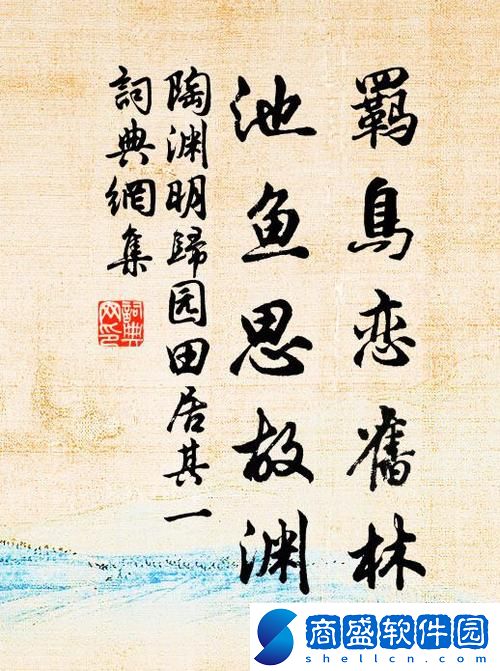 羈鳥恋舊林
池鱼思故渊
陶渊明歸园田居其一
詞典網集
詞典
网印
商盛软件园
shellcn.com